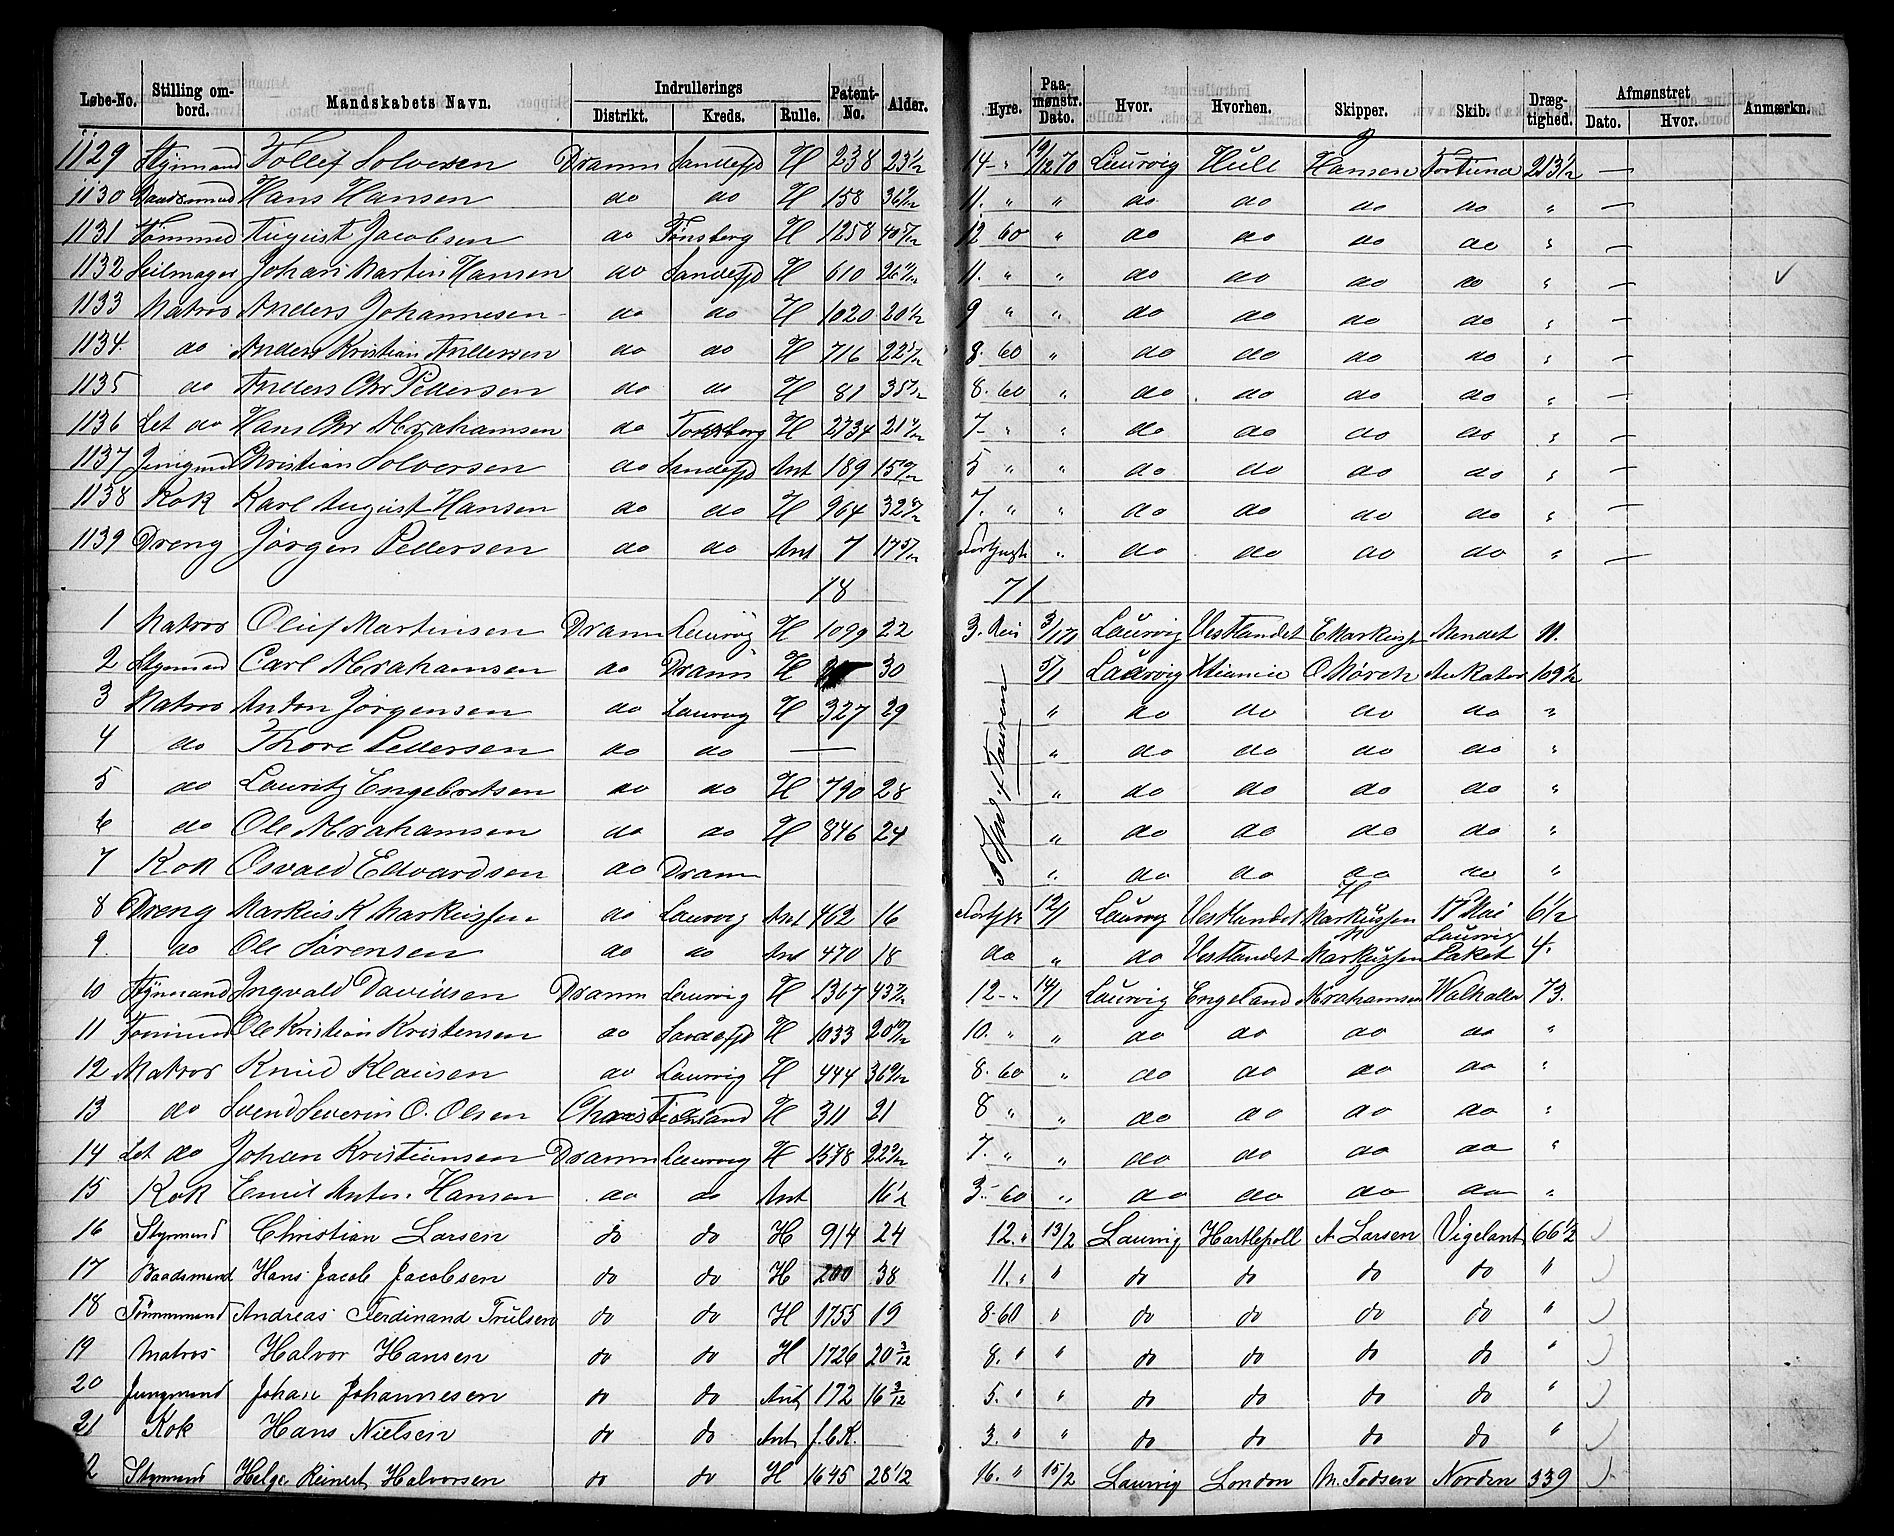 Løbe-No. Stilling ombord. Mandskabets Navn. Indrullerings Distrikt. Kreds. Rulle. Patent-No. Alder. Hyre. Paamønstr. Dato. Hvor. Hvorhen. Skipper. Skib. Drægtighed. Afmønstret Dato. Hvor. Anmærkn.
1129 Styrmand Tollef Solversen Dramm Sandefjd H 238 23 1/2 14 - " 19/12 70 Laurvig Hull Hansen Fortuna 213 1/2 —
1130 Baadsmnd Hans Hansen do do H 158 11. " " do do do do " —
1131 Tømmmd August Jacobsen do Tønsberg H 1258 12 60 " do do do do " —
1132 Seilmager Johan Martin Hansen do Sandefjd H 610 11. " " do do do do " — ✓
1133 Matros Anders Johannesen do do H 1020 20 1/2 9 " " do do do do " —
1134. do Anders Kristian Andersen do do H 716 8. 60 " do do do do " —
1135 do Anders Chr Pedersen do do H 81 8. 60 " do do do do " —
1136 Let do Hans Chr Abrahamsen do Tønsberg H 2734 7 - " " do do do do " —
1137 Jungmd Christian Solversen do Sandefjd Ant 189 5 " " do do do do " —
1138 Kok Karl August Hansen do do H 964 7. " " do do do do " —
1139 Dreng Jørgen Pedersen do do Ant 7 17 5/12 " do do do do " —
18 71
1 Matros Oluf Martinsen Dramm Laurvig H 1099 22 3. Reis 3/1 71 Laurvig Vestlandet E Markussen 11.
2 Styrmand Carl Abrahamsen do Dramm H 30 5/1 Laurvig Xtiania O Mørch 109 1/2
3 Matros Anton Jørgensen do Laurvig H 327 29 " do do do do "
4 do Thore Pedersen do do — " do do do do "
5 do Lauritz Engebretsen do do H 790 28 " do do do do "
6 do Ole Abrahamsen do do H 846 24 " do do do do "
7 Kok Osvald Edvardsen do Dramm " do do do do "
8 Dreng Markus K Markussen do Laurvig Ant 462 16 12/1 Laurvig Vestlandet H Markussen 17 Mai 6 1/2
9. do Ole Sørensen do do Ant 470 18 do " do Vestlandet Markussen Laurvigs Paket 4.
10 Styrmand Ingvald Davidsen Dramm Laurvig H 1367 12 - " 14/1 Laurvig Engeland Abrahamsen Walhalla 73.
11 Tømmmd Ole Kristian Kristensen do Sandefjd H 1033 20 10/12 10. " " do do do do "
12 Matros Knud Klausen do Laurvig H 444 8. 60 " do do do do "
13 do Svend Severin O. Olsen Christiansand H 311 21 8 " " do do do do "
14 Let do Johan Kristiansen Dramm Laurvig H 1578 7. " " do do do do "
15 Kok Emil Anton Hansen do do Ant 16 1/2 3. 60 " do do do do "
16 Styrmand Christian Larsen do do H 914 24 12. " 13/2 Laurvig Hartlepoll A Larsen Vigelant 66 1/2
17 Baadsmand Hans Jacob Jacobsen do do H 200 38 11. " " do do do do "
18 Tømmmand Andreas Ferdinand Trulsen do do H 1755 19 8 - 60 " do do do do "
19 Matros Halvor Hansen do do H 1726 20 3/12 8. " " do do do do "
20 Jungmand Johan Johannesen do do Ant 172 16 3/12 5. " " do do do do "
21 Kok Hans Nielsen do do Ant f.b.K. 3. " " do do do do "
2 Styrmand Helge Reinert Halvorsen do do H 1645 28 1/12 16. " 15/2 Laurvig London M. Todsen Norden 339